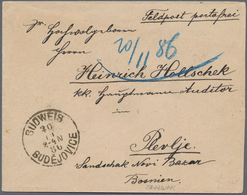 Feldpost portofrei
Sr. Hochwolgeboren
Herrn
20/11 86
Heinrich Holtschek
kk. Hauptmann Auditor
BUDWEIS
20
11
86
BUDĚJOVICE
Plevlje
Sandschak Novi Bazar
Bosnien